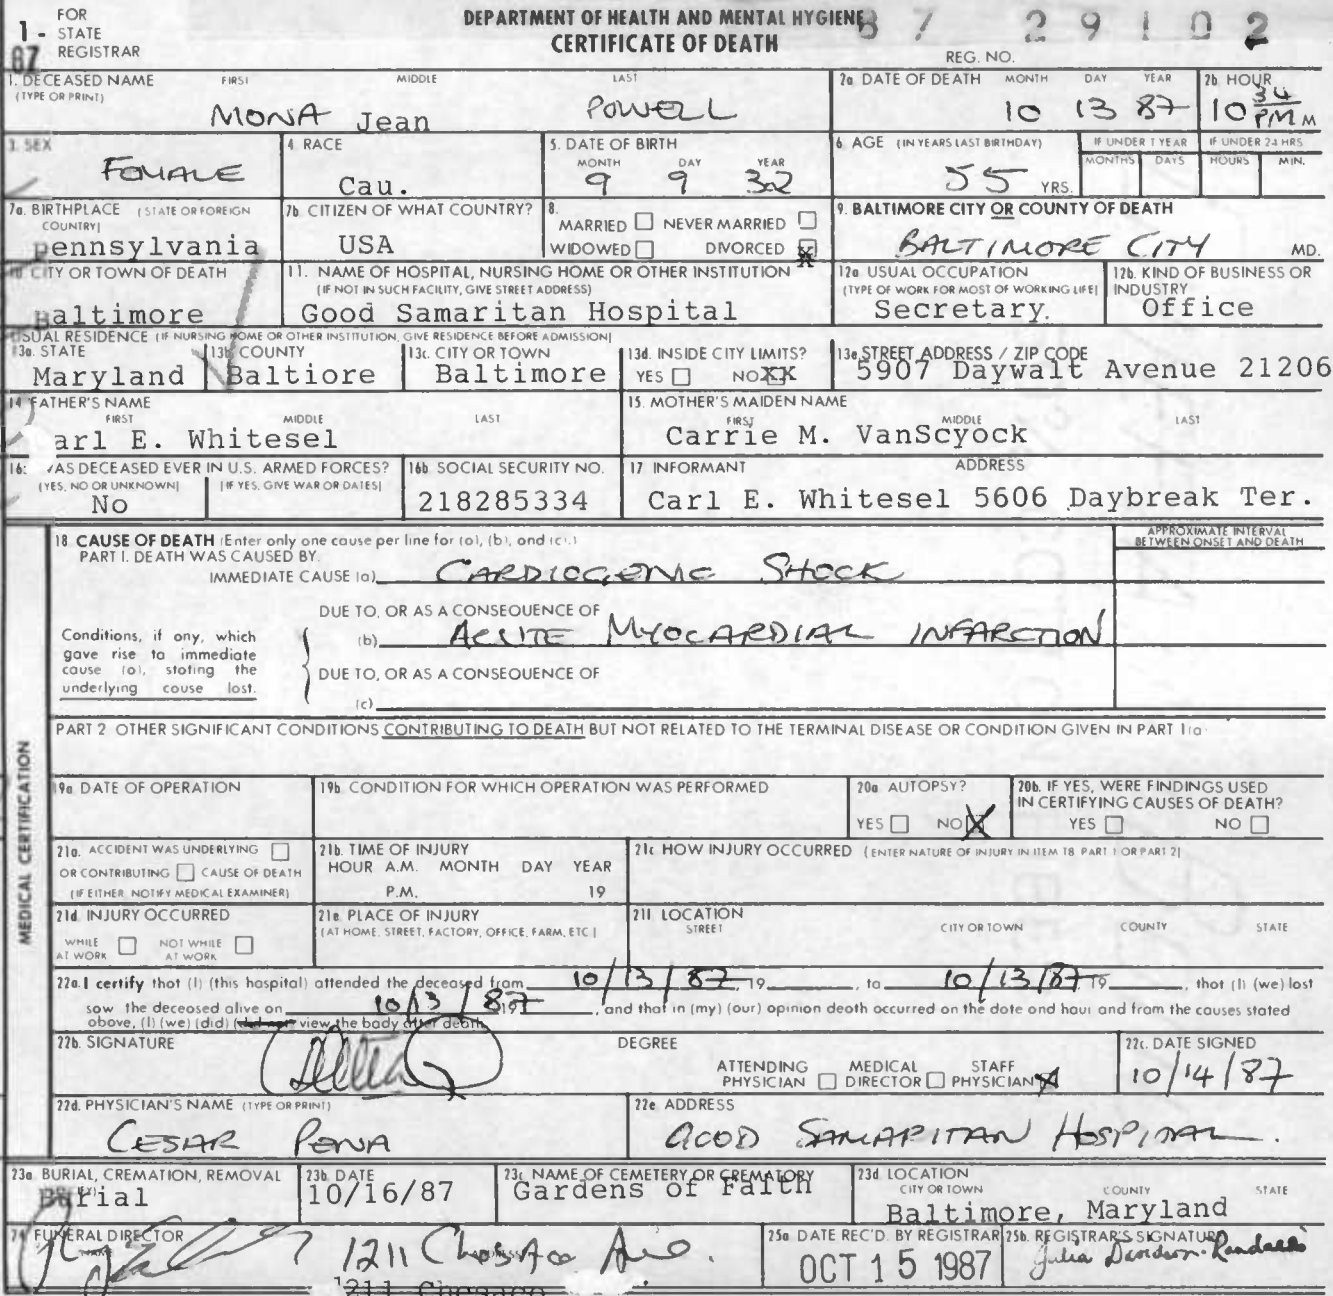 FOR
1- STATE
REGISTRAR
87
DEPARTMENT OF HEALTH AND MENTAL HYGIENE
CERTIFICATE OF DEATH
87 29102
REG. NO.
1. DECEASED NAME FIRST MIDDLE LAST
(TYPE OR PRINT)
MONA Jean POWELL
2a DATE OF DEATH MONTH DAY YEAR
10 13 87
2b. HOUR
10 34 PM M
3. SEX
FEMALE
4. RACE
Cau.
5. DATE OF BIRTH
MONTH DAY YEAR
9 9 32
6. AGE (IN YEARS LAST BIRTHDAY)
55 YRS.
IF UNDER 1 YEAR
MONTHS DAYS
IF UNDER 24 HRS
HOURS MIN.
7a. BIRTHPLACE (STATE OR FOREIGN
COUNTRY)
Pennsylvania
7b. CITIZEN OF WHAT COUNTRY?
USA
8.
MARRIED NEVER MARRIED
WIDOWED DIVORCED X
9. BALTIMORE CITY OR COUNTY OF DEATH
BALTIMORE CITY MD.
10. CITY OR TOWN OF DEATH
Baltimore
11. NAME OF HOSPITAL, NURSING HOME OR OTHER INSTITUTION
(IF NOT IN SUCH FACILITY, GIVE STREET ADDRESS)
Good Samaritan Hospital
12a. USUAL OCCUPATION
(TYPE OF WORK FOR MOST OF WORKING LIFE)
Secretary.
12b. KIND OF BUSINESS OR
INDUSTRY
Office
USUAL RESIDENCE (IF NURSING HOME OR OTHER INSTITUTION, GIVE RESIDENCE BEFORE ADMISSION)
13a. STATE
Maryland
13b. COUNTY
Baltiore
13c. CITY OR TOWN
Baltimore
13d. INSIDE CITY LIMITS?
YES NO XX
13e. STREET ADDRESS / ZIP CODE
5907 Daywalt Avenue 21206
14. FATHER'S NAME
FIRST MIDDLE LAST
arl E. Whitesel
15. MOTHER'S MAIDEN NAME
FIRST MIDDLE LAST
Carrie M. VanScyock
16: WAS DECEASED EVER IN U.S. ARMED FORCES?
(YES, NO OR UNKNOWN) (IF YES, GIVE WAR OR DATES)
No
16b SOCIAL SECURITY NO.
218285334
17 INFORMANT ADDRESS
Carl E. Whitesel 5606 Daybreak Ter.
MEDICAL CERTIFICATION
18. CAUSE OF DEATH (Enter only one cause per line for (a), (b), and (c).)
PART I. DEATH WAS CAUSED BY.
APPROXIMATE INTERVAL
BETWEEN ONSET AND DEATH
IMMEDIATE CAUSE (a) CARDIOGENIC SHOCK
DUE TO, OR AS A CONSEQUENCE OF
(b) ACUTE MYOCARDIAL INFARCTION
Conditions, if any, which
gave rise to immediate
cause (a), stating the
underlying cause last.
DUE TO, OR AS A CONSEQUENCE OF
(c)
PART 2 OTHER SIGNIFICANT CONDITIONS CONTRIBUTING TO DEATH BUT NOT RELATED TO THE TERMINAL DISEASE OR CONDITION GIVEN IN PART 1(a)
19a. DATE OF OPERATION
19b. CONDITION FOR WHICH OPERATION WAS PERFORMED
20a AUTOPSY?
YES NO X
20b. IF YES, WERE FINDINGS USED
IN CERTIFYING CAUSES OF DEATH?
YES NO
21a. ACCIDENT WAS UNDERLYING
OR CONTRIBUTING CAUSE OF DEATH
(IF EITHER, NOTIFY MEDICAL EXAMINER)
21b. TIME OF INJURY
HOUR A.M. MONTH DAY YEAR
P.M. 19
21c HOW INJURY OCCURRED (ENTER NATURE OF INJURY IN ITEM 18, PART 1 OR PART 2)
21d. INJURY OCCURRED
WHILE AT WORK NOT WHILE AT WORK
21e. PLACE OF INJURY
(AT HOME, STREET, FACTORY, OFFICE, FARM, ETC)
21f. LOCATION
STREET CITY OR TOWN COUNTY STATE
22a. I certify that (I) (this hospital) attended the deceased from 10/13/87, 19 , to 10/13/87 19 , that (I) (we) last
saw the deceased alive on 10/13/87 19 , and that in (my) (our) opinion death occurred on the date and hour and from the causes stated
above, (I) (we) (did) (did not) view the body after death.
22b. SIGNATURE
DEGREE
ATTENDING PHYSICIAN MEDICAL DIRECTOR STAFF PHYSICIAN X
22c. DATE SIGNED
10/14/87
22d. PHYSICIAN'S NAME (TYPE OR PRINT)
CESAR PENA
22e ADDRESS
GOOD SAMARITAN HOSPITAL.
23a. BURIAL, CREMATION, REMOVAL
Burial
23b. DATE
10/16/87
23c. NAME OF CEMETERY OR CREMATORY
Gardens of Faith
23d LOCATION
CITY OR TOWN COUNTY STATE
Baltimore, Maryland
24 FUNERAL DIRECTOR
1211 Chesaco Ave.
1211 Chesaco
25a DATE REC'D. BY REGISTRAR
OCT 15 1987
25b. REGISTRAR'S SIGNATURE
Julia Davidson-Randall